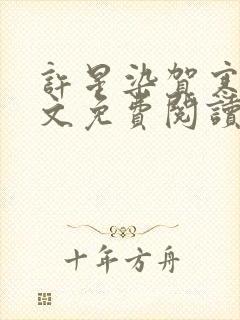 許星染賀寒
文免費閱讀
十年方舟